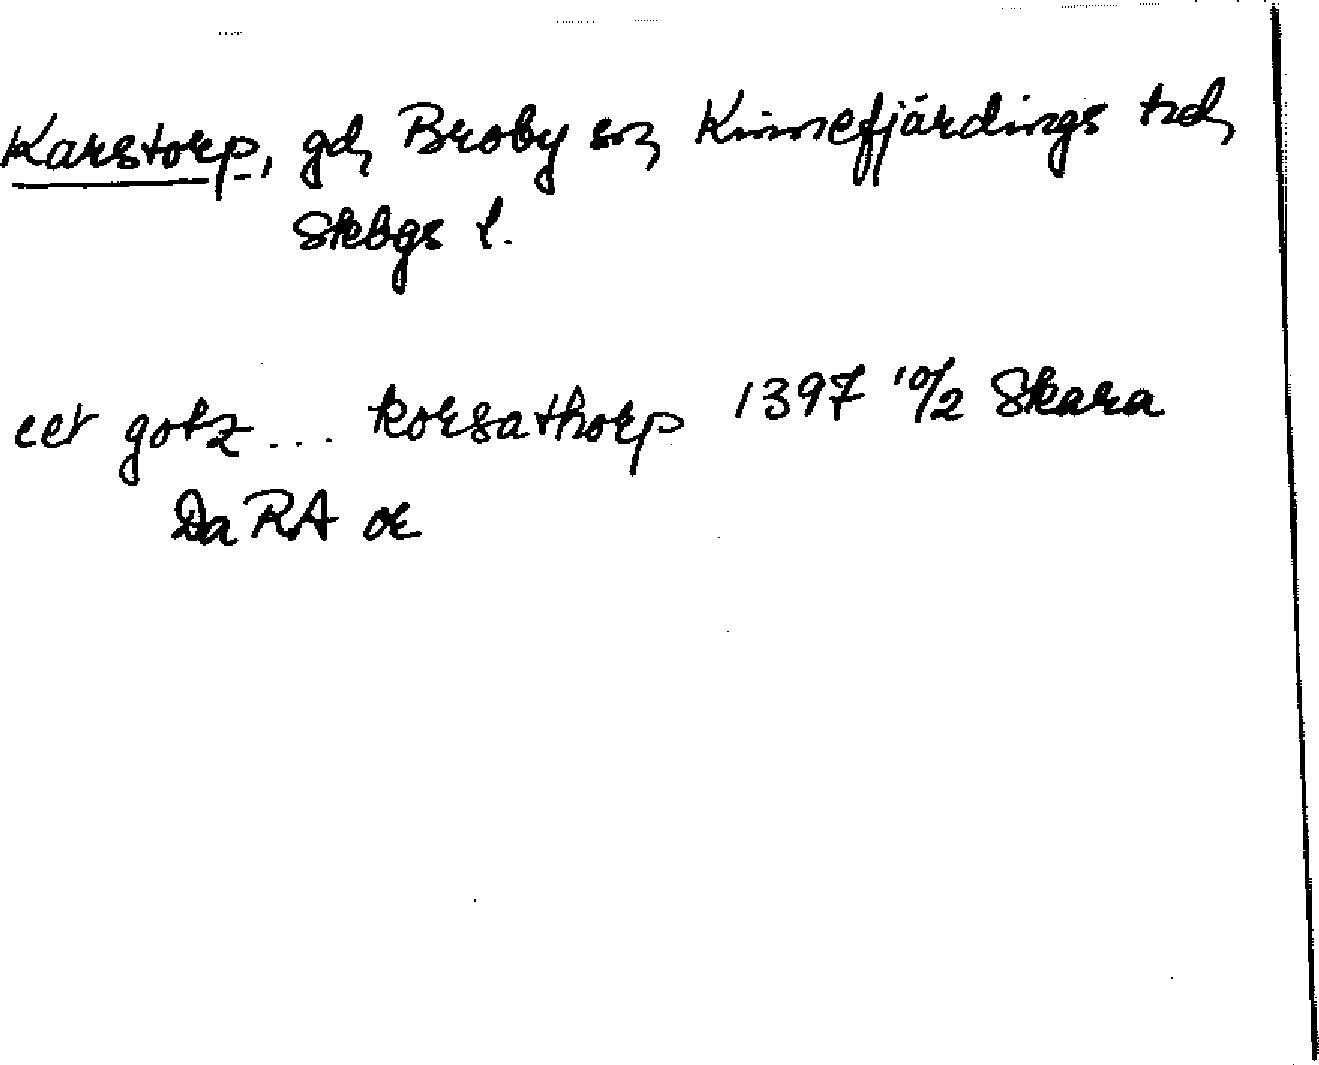 Karstorp, gd, Broby sn, Kinnefjärdings hd,
Skbgs l.
eet gotz ... korsathorp 1397 10/2 Skara
Da RA or